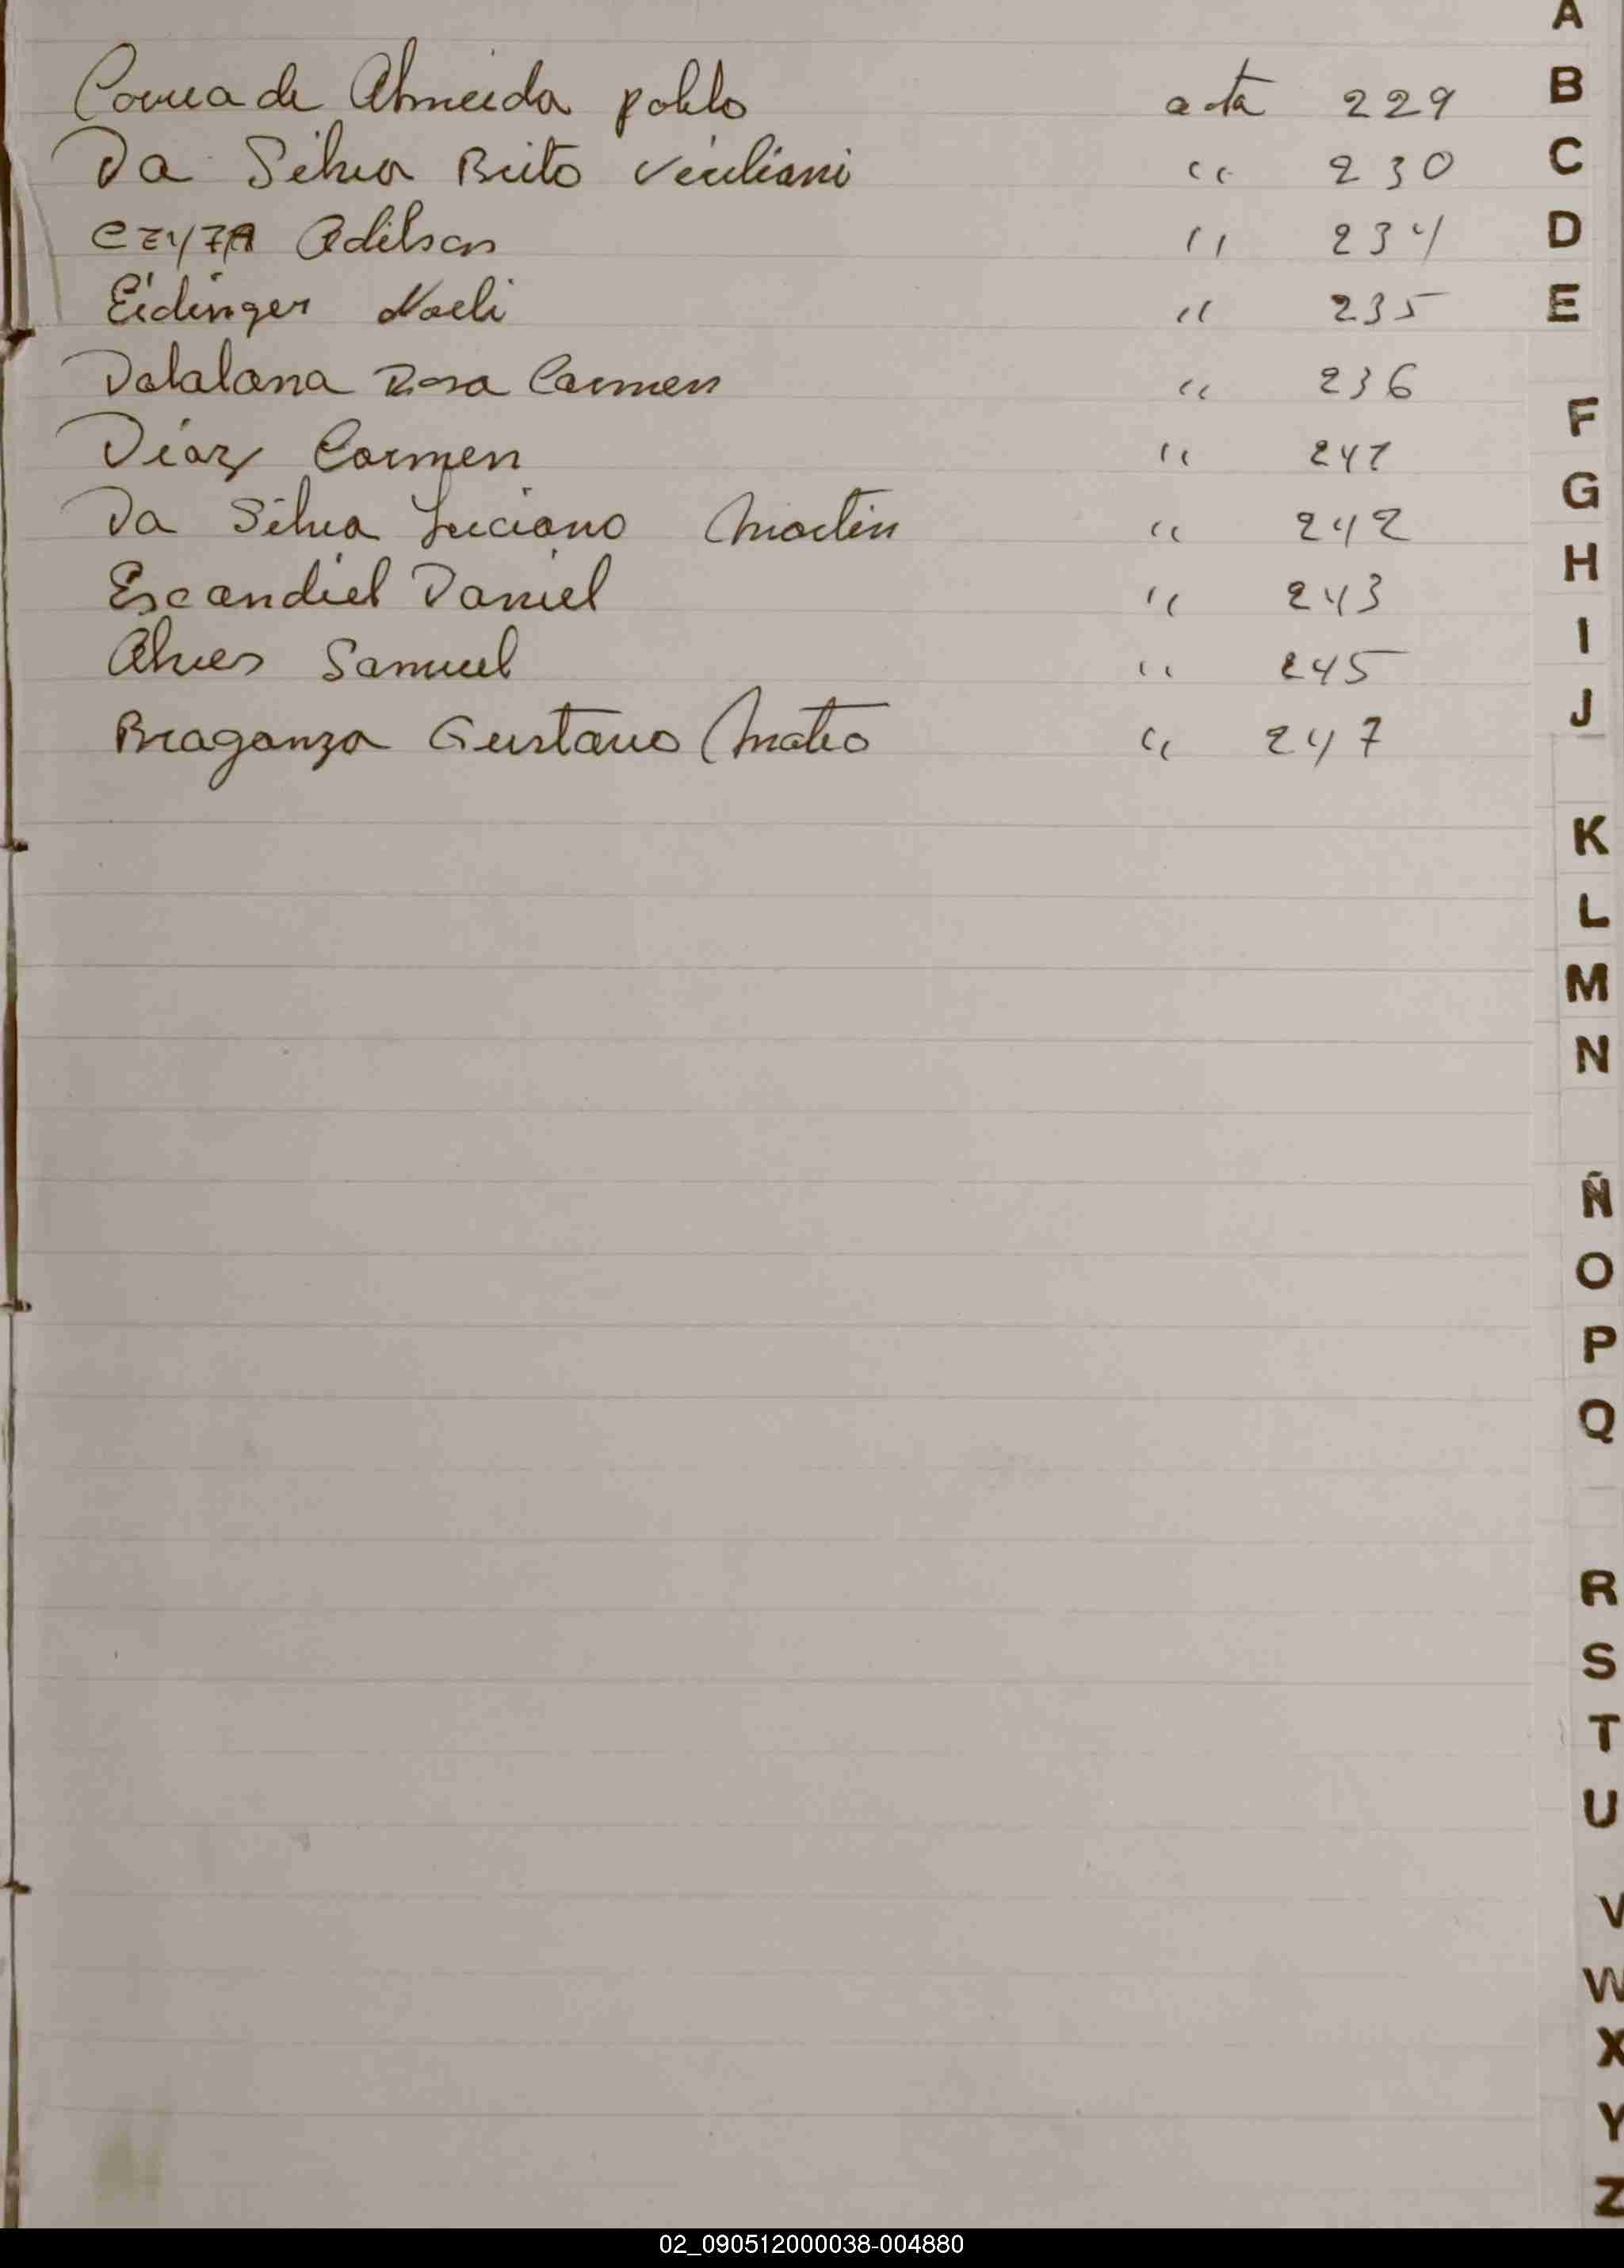 Correa de Almeida pablo acta 229
Da Silva Brito Viviliani " 230
CZYZA Adilson " 234
Eidinger Noeli " 235
Dalalana Rosa Carmen " 236
Díaz Carmen " 241
Da Silva Luciano Martin " 242
Escandiel Daniel " 243
Alves Samuel " 245
Braganza Gustavo Mateo " 247
A
B
C
D
E
F
G
H
I
J
K
L
M
N
Ñ
O
P
Q
R
S
T
U
V
W
X
Y
Z
02_090512000038-004880